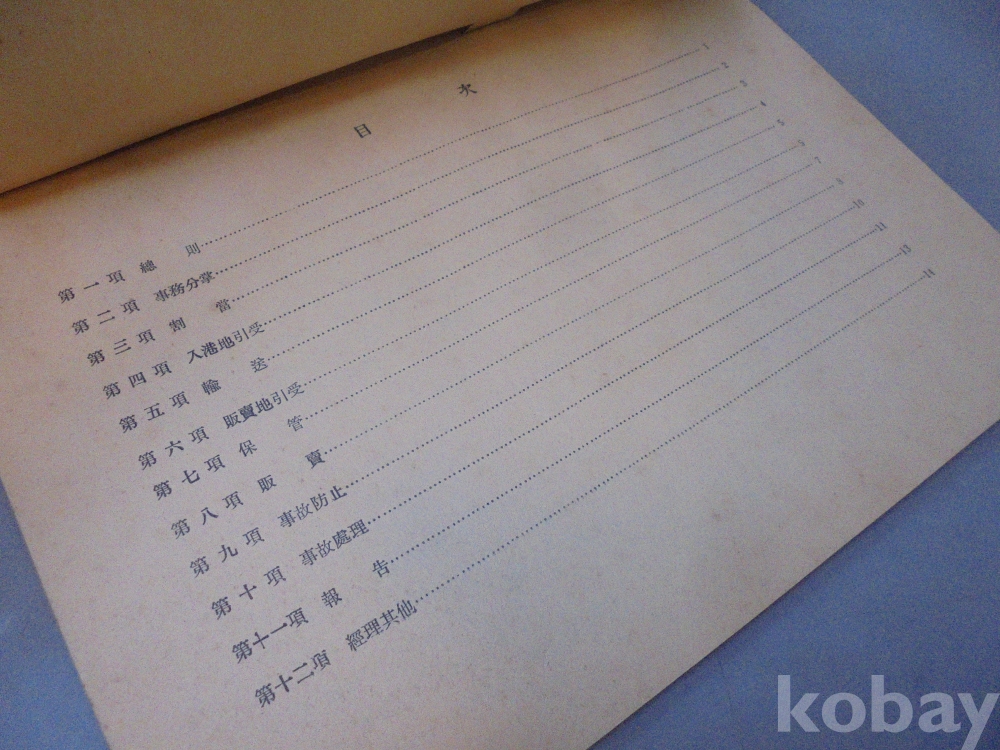 目 次
第一項 總 則……1
第二項 事務分掌……2
第三項 割 當……3
第四項 入港地引受……4
第五項 輸 送……5
第六項 販賣地引受……5
第七項 保 管……7
第八項 販 賣……8
第九項 事故防止……10
第十項 事故處理……11
第十一項 報 告……13
第十二項 經理其他……14
kobay